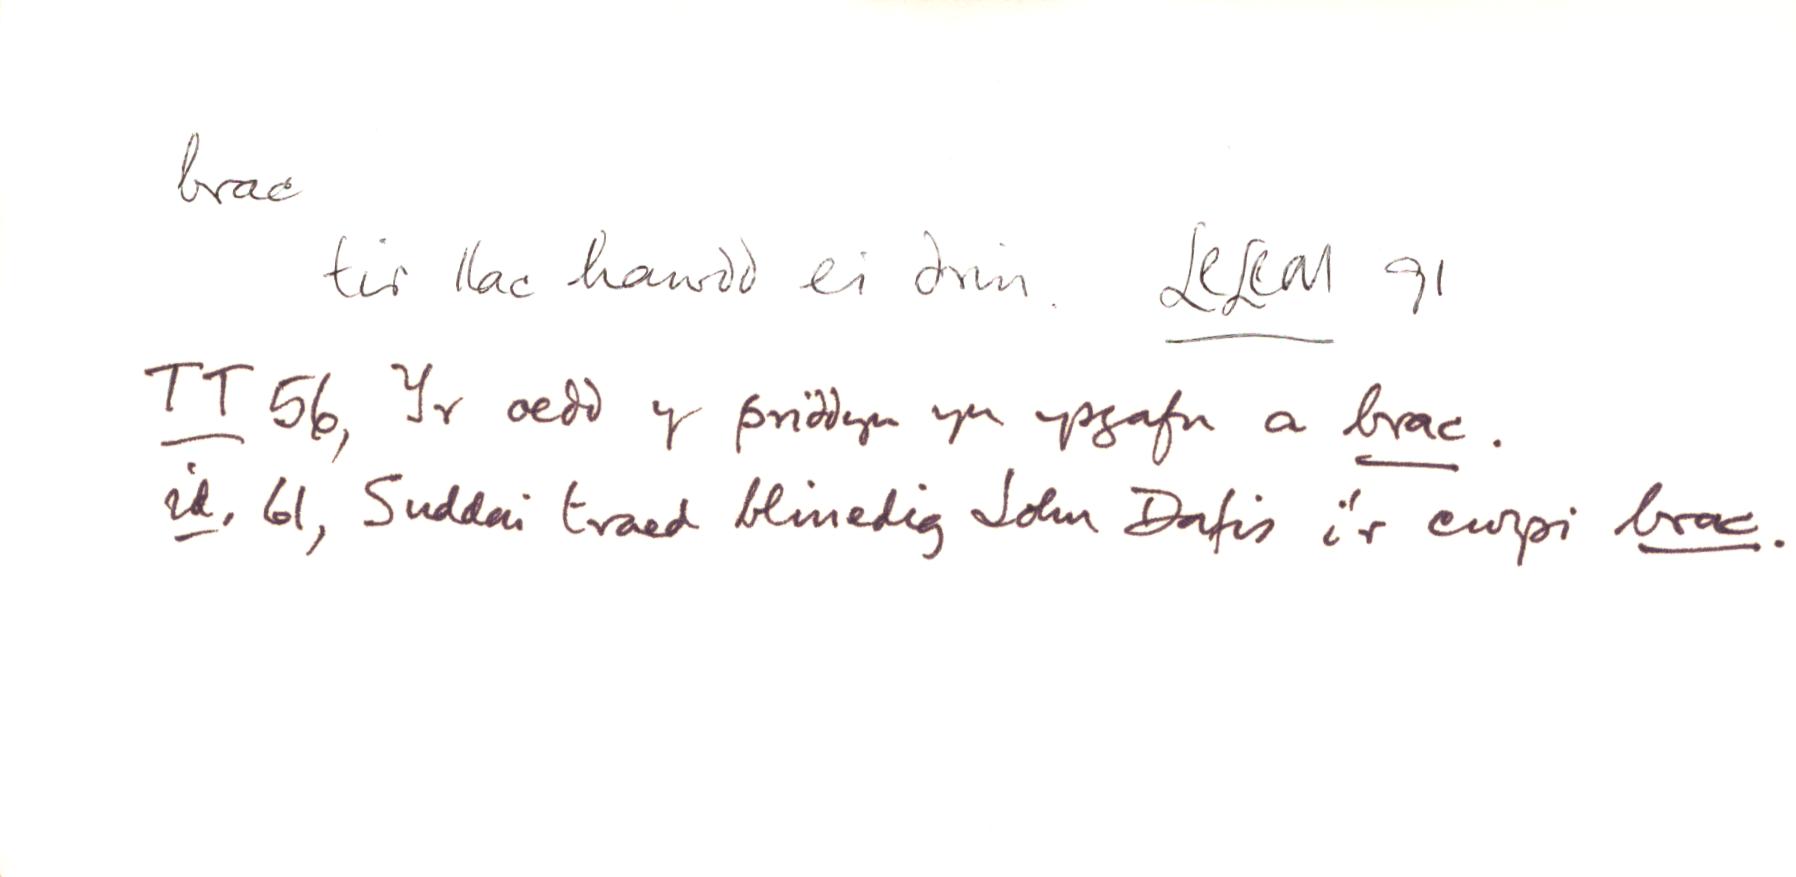 brac
tir llac hawdd ei drin. LlLlM 91
TT 56, Yr oedd y priddyn yn ysgafn a brac.
id. 61, Suddai traed blinedig John Dafis i'r cwrpi brac.